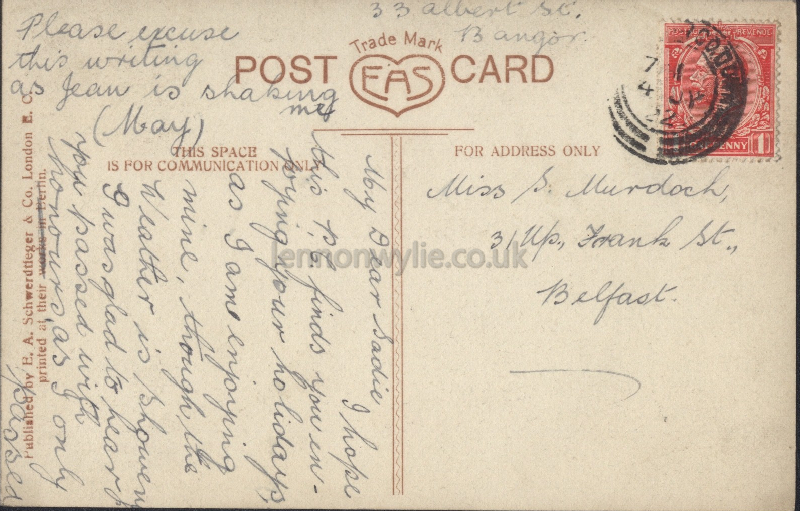 33 Albert St.
Bangor.
Trade Mark
POST CARD
EAS
THIS SPACE
IS FOR COMMUNICATION ONLY
FOR ADDRESS ONLY
Published by E. A. Schwerdtfeger & Co. London E. C.
printed at their works in Berlin.
My Dear Sadie
I hope
this P.C. finds you en-
joying your holidays,
as I am enjoying
mine, though the
Weather is showery
I was glad to hear
you passed with
honours, as I only
passed
Please excuse
this writing
as Jean is shaking
me
(May)
Miss S. Murdoch,
31 Up. Frank St.,
Belfast.
REVENUE
PENNY
1
4 JY
22
lennonwylie.co.uk